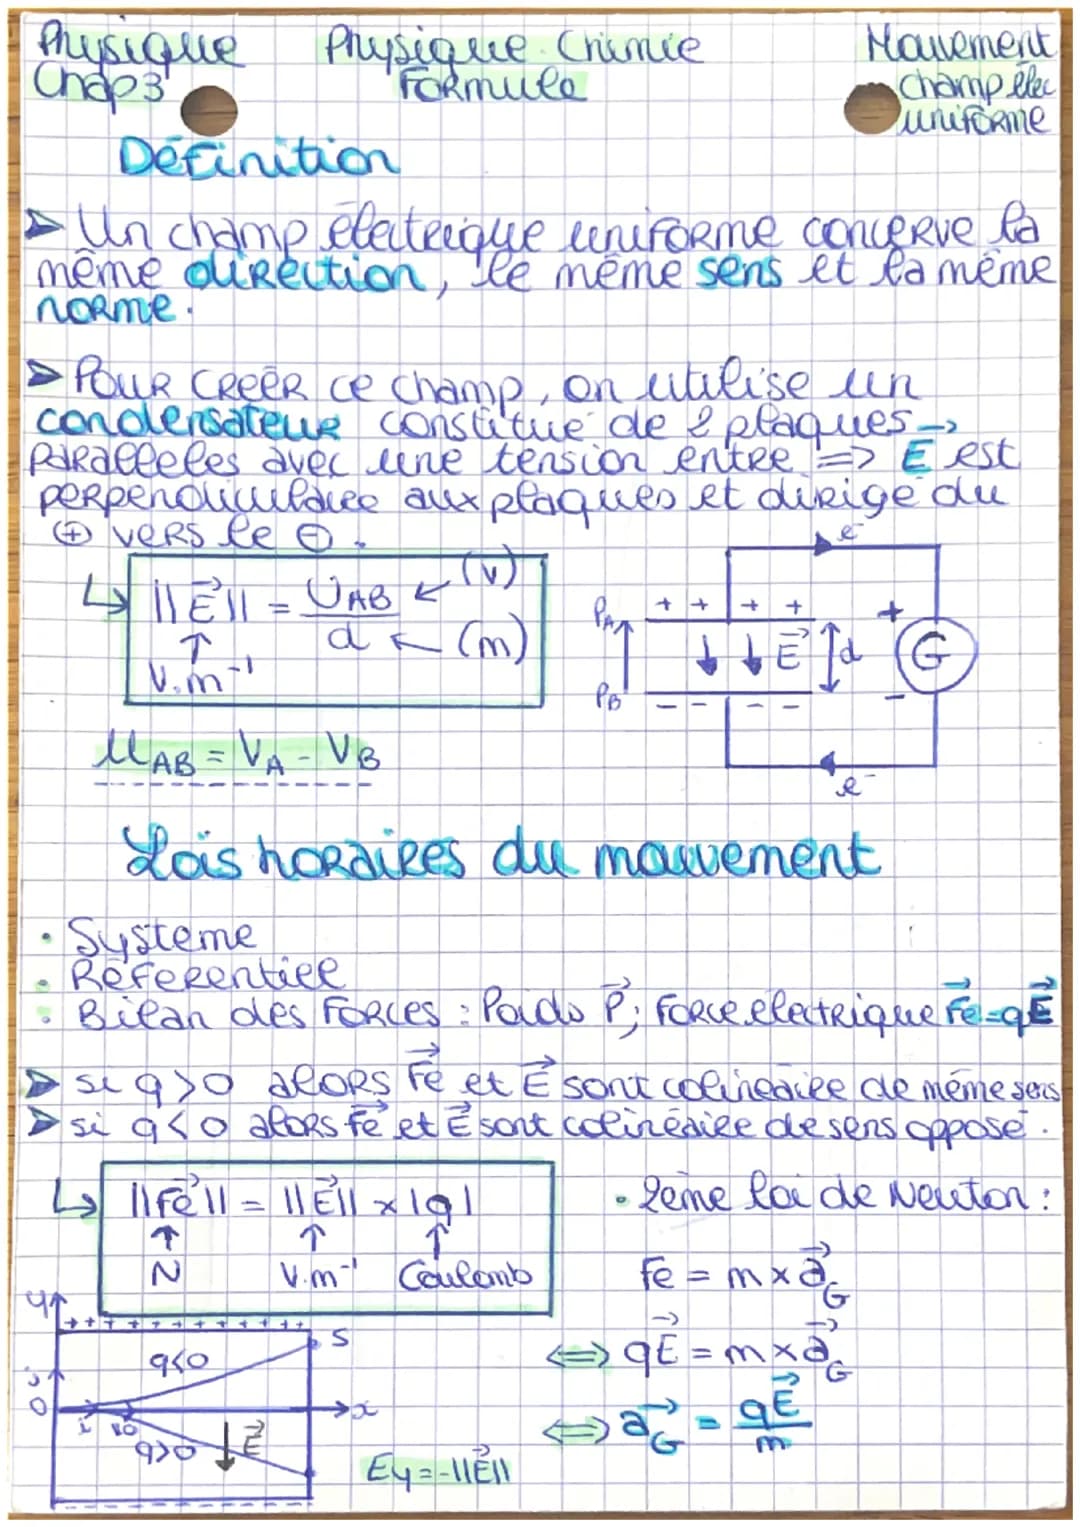 Physique Physique Chimie Mouvement
Chap3 Formule champ élec
uniforme
Définition
➤ Un champ électrique uniforme concerve la
même direction, le même sens et la même
norme.
➤ Pour créer ce champ, on utilise un
condensateur constitué de 2 plaques
parallèles avec une tension entre => E⃗ est
perpendiculaire aux plaques et dirigé du
⊕ vers le ⊖.
↳ ||E⃗|| = UAB / d ← (V) ← (m)
↑
V.m⁻¹
e⁻
PA + + + + +
E⃗ d G
PB - - - - -
e⁻
UAB = VA - VB
Lois horaires du mouvement
• Système
• Référentiel
• Bilan des forces : Poids P⃗; Force électrique F⃗e=qE⃗
➤ si q>0 alors F⃗e et E⃗ sont colinéaire de même sens
➤ si q<0 alors F⃗e et E⃗ sont colinéaire de sens opposé.
↳ ||F⃗e|| = ||E⃗|| x |q|
↑ ↑ ↑
N V.m⁻¹ Coulomb
• 2ème loi de Newton :
Fe = m x a⃗G
⇔ qE⃗ = m x a⃗G
⇔ a⃗G = qE⃗ / m
y
+ + + + + + + + + + +
S
q<0
j
O x
i v0
q>0 E⃗
Ey = -||E⃗||